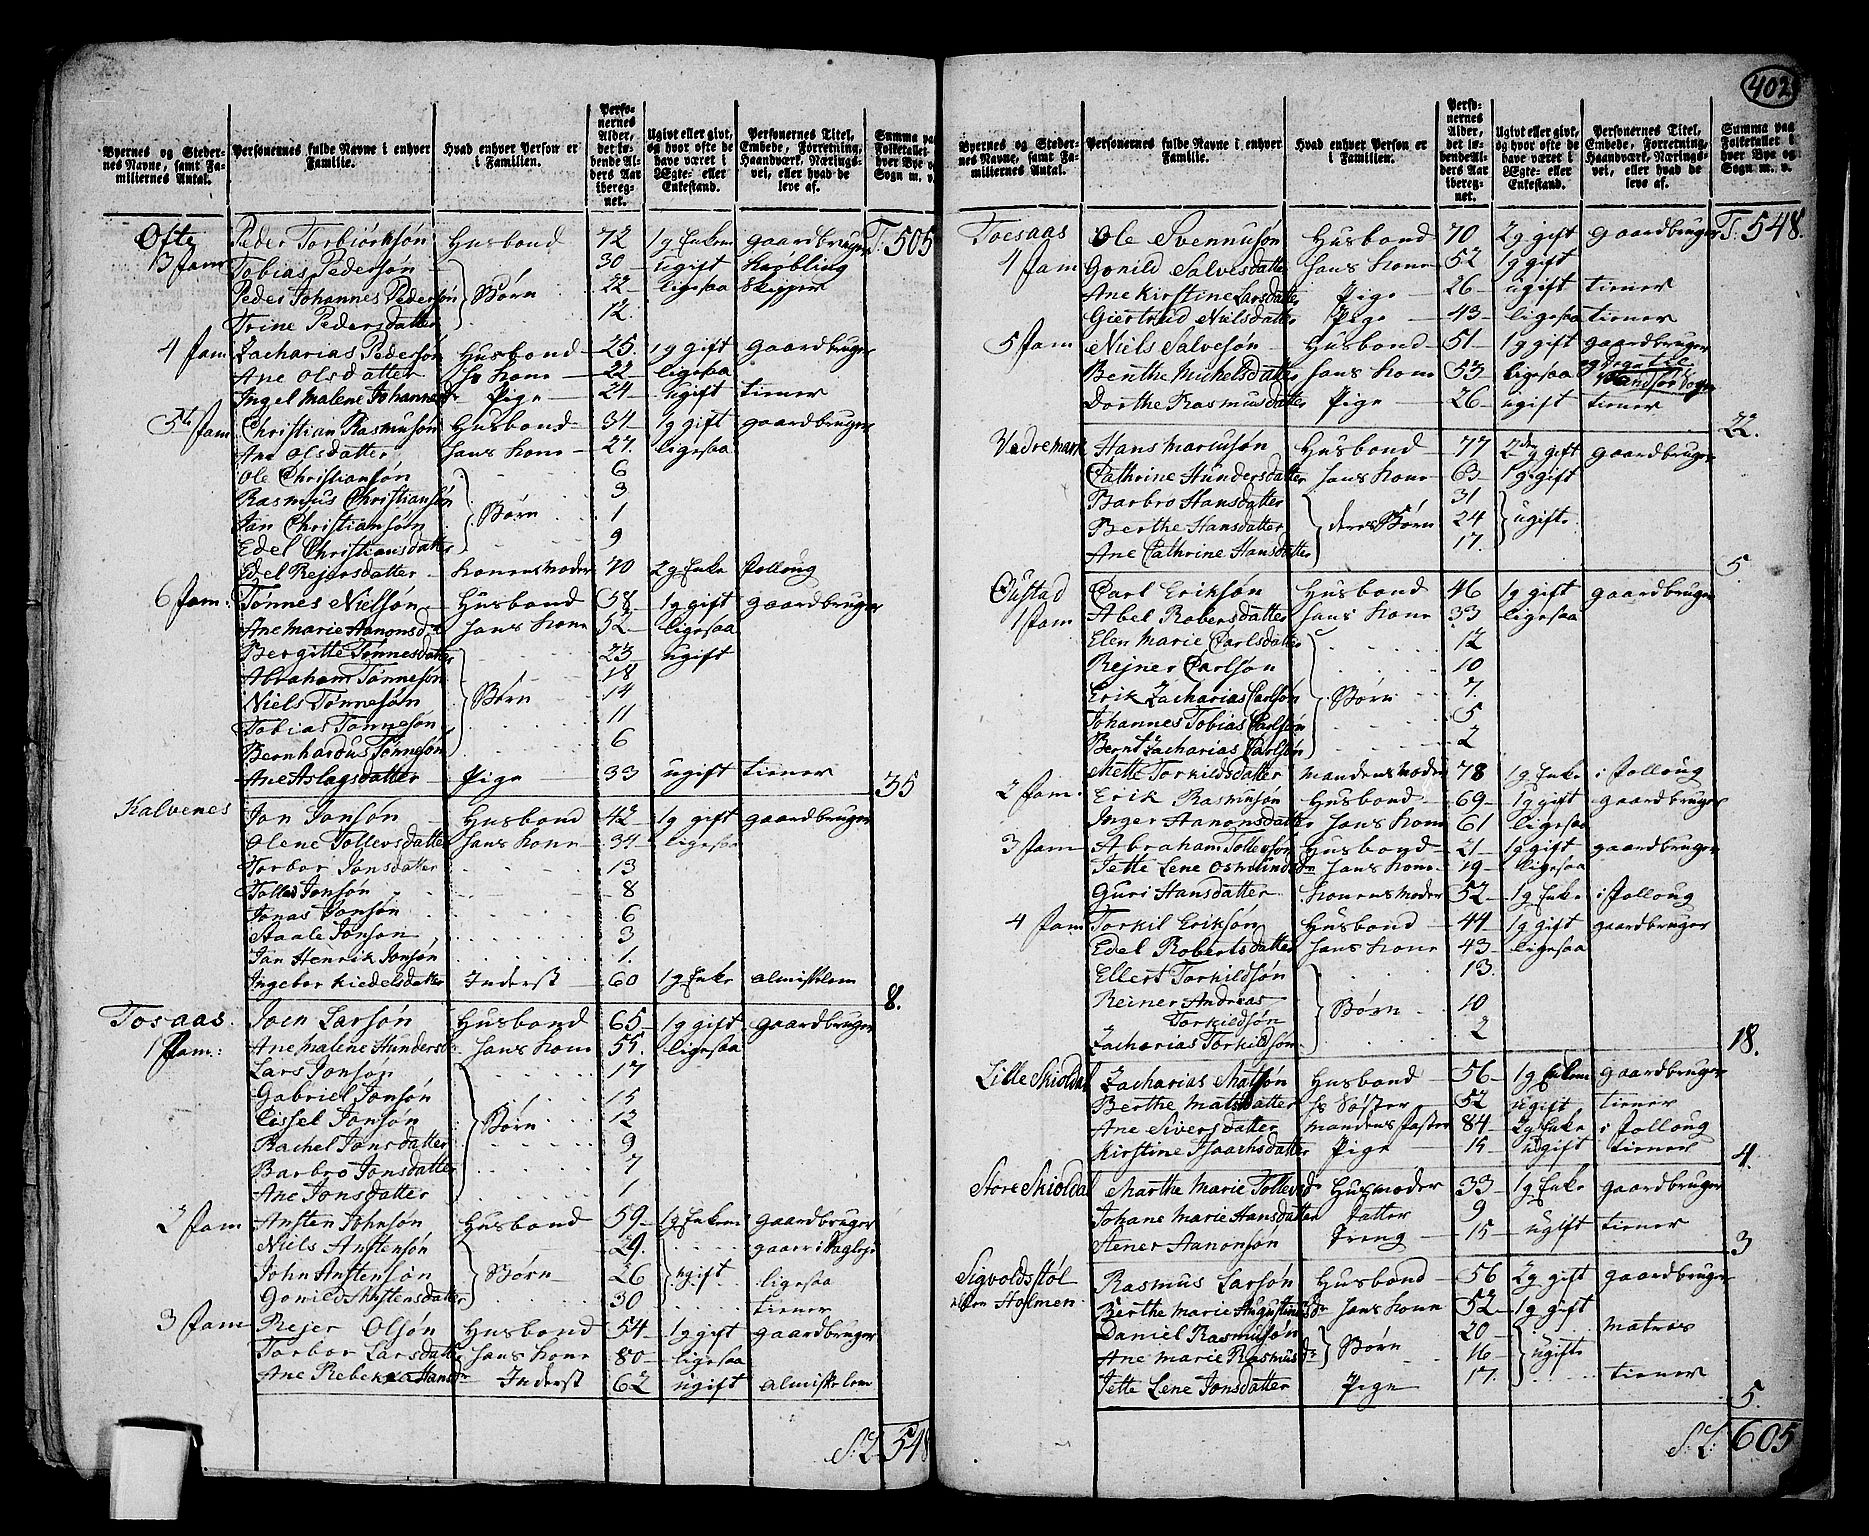 402
Byernes og Steder-nes Navne, samt Fa-miliernes Antal. | Personernes fulde Navne i enhver Familie. | Hvad enhver Person er i Familien. | Perso-nernes Alder, det in-dende Al-ders Aar iberegnet. | Ugivt eller givt, og hvor ofte de have været i Ægte- eller Enkestand. | Personernes Titel, Embede, Forretning, Haandværk, Nærings-vei, eller hvad de leve af. | Summa paa Folketallet i hver Bye og Sogn m. v.
Ofte Peder Torbiörksön Husbond 72 1g Enkem gaardbruger T: 505
3 fam Tobias Pedersön 30 ugift
Peder Johannes Pedersön Börn 22 ligesaa Skipper
Trine Pedersdatter 12.
4 fam Zacharias Pedersön Husbond 25. 1g gift gaardbruger
Ane Olsdatter Hs Kone 22 ligesaa
Ingel Malene Johannesdr Pige 24 ugift tiener
5t fam Christian Rasmusön Husbond 34 1g gift gaardbruger
Ane Olsdatter hans Kone 27. ligesaa
Ole Christiansön 6
Rasmus Christiansön 3
Jan Christiansön Börn 1
Edel Christiansdatter 9
Edel Rejersdatter Konens Moder 70 2g Enke Folloug
6 fam: Tönnes Nielsön Husbond 58 1g gift gaardbruger
Ane Marie Aanonsdr hans Kone 52 ligesaa
Bergitte Tönnesdatter 23 ugift
Abraham Tönnesön 18
Niels Tönnesön Börn 14
Tobias Tönnesön 11
Bernhardus Tönnesön 6
Ane Aslagsdatter Pige 33 ugift tiener 35
Kalvenes Jon Jonsön Husbond 42 1g gift gaardbruger
Olene Tollevsdatter hans Kone 34 ligesaa
Torbor Jonsdatter 13
Tolles Jonsön 8
Jonas Jonsön 6
Staale Jonson 3
Jan Henrik Jonsön 1.
Ingebor Kiedelsdatter Inderst 60 1g Enke almisselem 8.
Tosaas. Joen Larsön Husbond 65 1g gift gaardbruger
1 fam: Ane Malene Hundersdr hans Kone 55. ligesaa
Lars Jonson 17
Gabriel Jonsön 15
Cissel Jonsön Börn 12
Rachel Jonsdatter 9
Barbro Jonsdatter 7
Ane Jonsdatter 1
2 fam Ansten Johnsön Husbond 59 1g Enkem gaardbruger
Niels Anstensön 29.
John Anstensön Börn 26 ugift ligesaa
Gonild Anstensdatter 30 tiener
3 fam Rejer Olsön Husbond 54 1g gift gaardbruger
Torbor Larsdatter hans Kone 80 ligesaa
Ane Rebekca Hansdr Inderst 62 ugift almisselem
S: L 548
Byernes og Steder-nes Navne, samt Fa-miliernes Antal. | Personernes fulde Navne i enhver Familie. | Hvad enhver Person er i Familien. | Perso-nernes Alder, det in-dende Al-ders Aar iberegnet. | Ugivt eller givt, og hvor ofte de have været i Ægte- eller Enkestand. | Personernes Titel, Embede, Forretning, Haandværk, Nærings-vei, eller hvad de leve af. | Summa paa Folketallet i hver Bye og Sogn m. v.
Toesaas Ole Svennusön Husbond 70 2g gift gaardbruger T: 548.
4 fam Gonild Salvesdatter hans Kone 52 1g gift
Ane Kirstine Larsdatter Pige 26 ugift tiener
Giertrud Nielsdatter Pige 43 ligesaa tiener
5 fam Niels Salvesön Husbond 51 1g gift gaardbruger
Benthe Michelsdatter hans Kone 53 ligesaa
Dorthe Rasmusdatter Pige 26 ugift tiener 22.
Vedremark Hans Mariusön Husbond 77 2den g gift gaardbruger
Cathrine Hundersdatter hans Kone 63 1g gift
Barbro Hansdatter 31
Berthe Hansdatter deres Börn 24 ugifte
Ane Cathrine Hansdatter 17. 5.
Öustad Carl Eriksön Husbond 46 1g gift gaardbruger
1 fam Abel Robersdatter hans Kone 33 ligesaa
Elen Marie Carlsdatter 12
Rejner Carlsön 10
Erik Zacharias Carlsön Börn 7.
Johannes Tobias Carlsön 5
Bernt Zacharias Carlsön 2
Mette Torkildsdatter Mandens Moder 78 1g Enke i Folloug
2 fam. Erik Rasmusön Husbond 69 1g gift gaardbruger
Inger Aanonsdatter hans Kone 61 ligesaa
3 fam Abraham Tollefsön Husbond 21 1g gift gaardbruger
Jette Lene Osmundsdr hans Kone 19 ligesaa
Guri Hansdatter Konens Moder 52 1g Enke i Folloug
4 fam Torkil Erikson Husbond 44 1g gift gaardbruger
Edel Robertsdatter hans Kone 43 ligesaa
Ellert Torkildsön 13.
Reiner Andreas
Torkildsön Börn 10
Zacharias Torkildsön 2 18.
Lille Skioldal Zacharias Matsön Husbond 56 1g Enkem gaardbruger
Berthe Matsdatter Hs Söster 52 ugift tiener
Ane Siversdatter Mandens Faster 84 2g Enke i Folloug
Kirstine Isaachsdatter Pige 15 ugift tiener 4.
Store Skioldal Marthe Marie Tollevsdr Husmoder 33 1g Enke gaardbruger
Johane Marie Hansdatter Datter 9
Stener Aanonsön Dreng 15 ugift tiener 3
Sigvoldsstöl Rasmus Larsön Husbond 56 2g gift gaardbruger
Holmen Berthe Marie Augustinusdr hans Kone 52 1g gift
Daniel Rasmusön 20 matros
Ane Marie Rasmusdr Börn 16 ugifte
Jette Lene Jonsdatter Pige 17. tiener 5.
S: L: 605